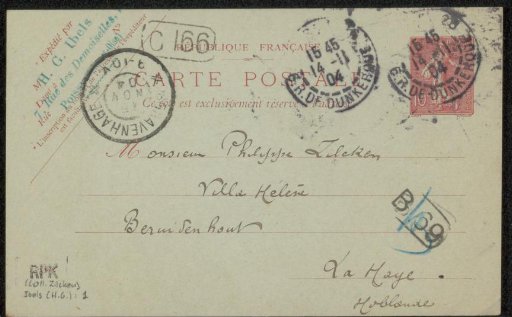 Expédié par
H. G. Ibels
7, Rue des Demoiselles.
C 166
RÉPUBLIQUE FRANÇAISE
CARTE POSTALE
Ce côté est exclusivement réservé
'S GRAVENHAGE
NOV
04
15 45
14 - 11
04
R. DE DUNKERQUE
15 45
14 - 11
04
R. DE DUNKERQUE
10
Monsieur Philippe Zilcken
Villa Hélène
Bezuidenhout
La Haye
Hollande
B 69
RPK
(Coll. Zilcken)
Ibels (H.G.): 1